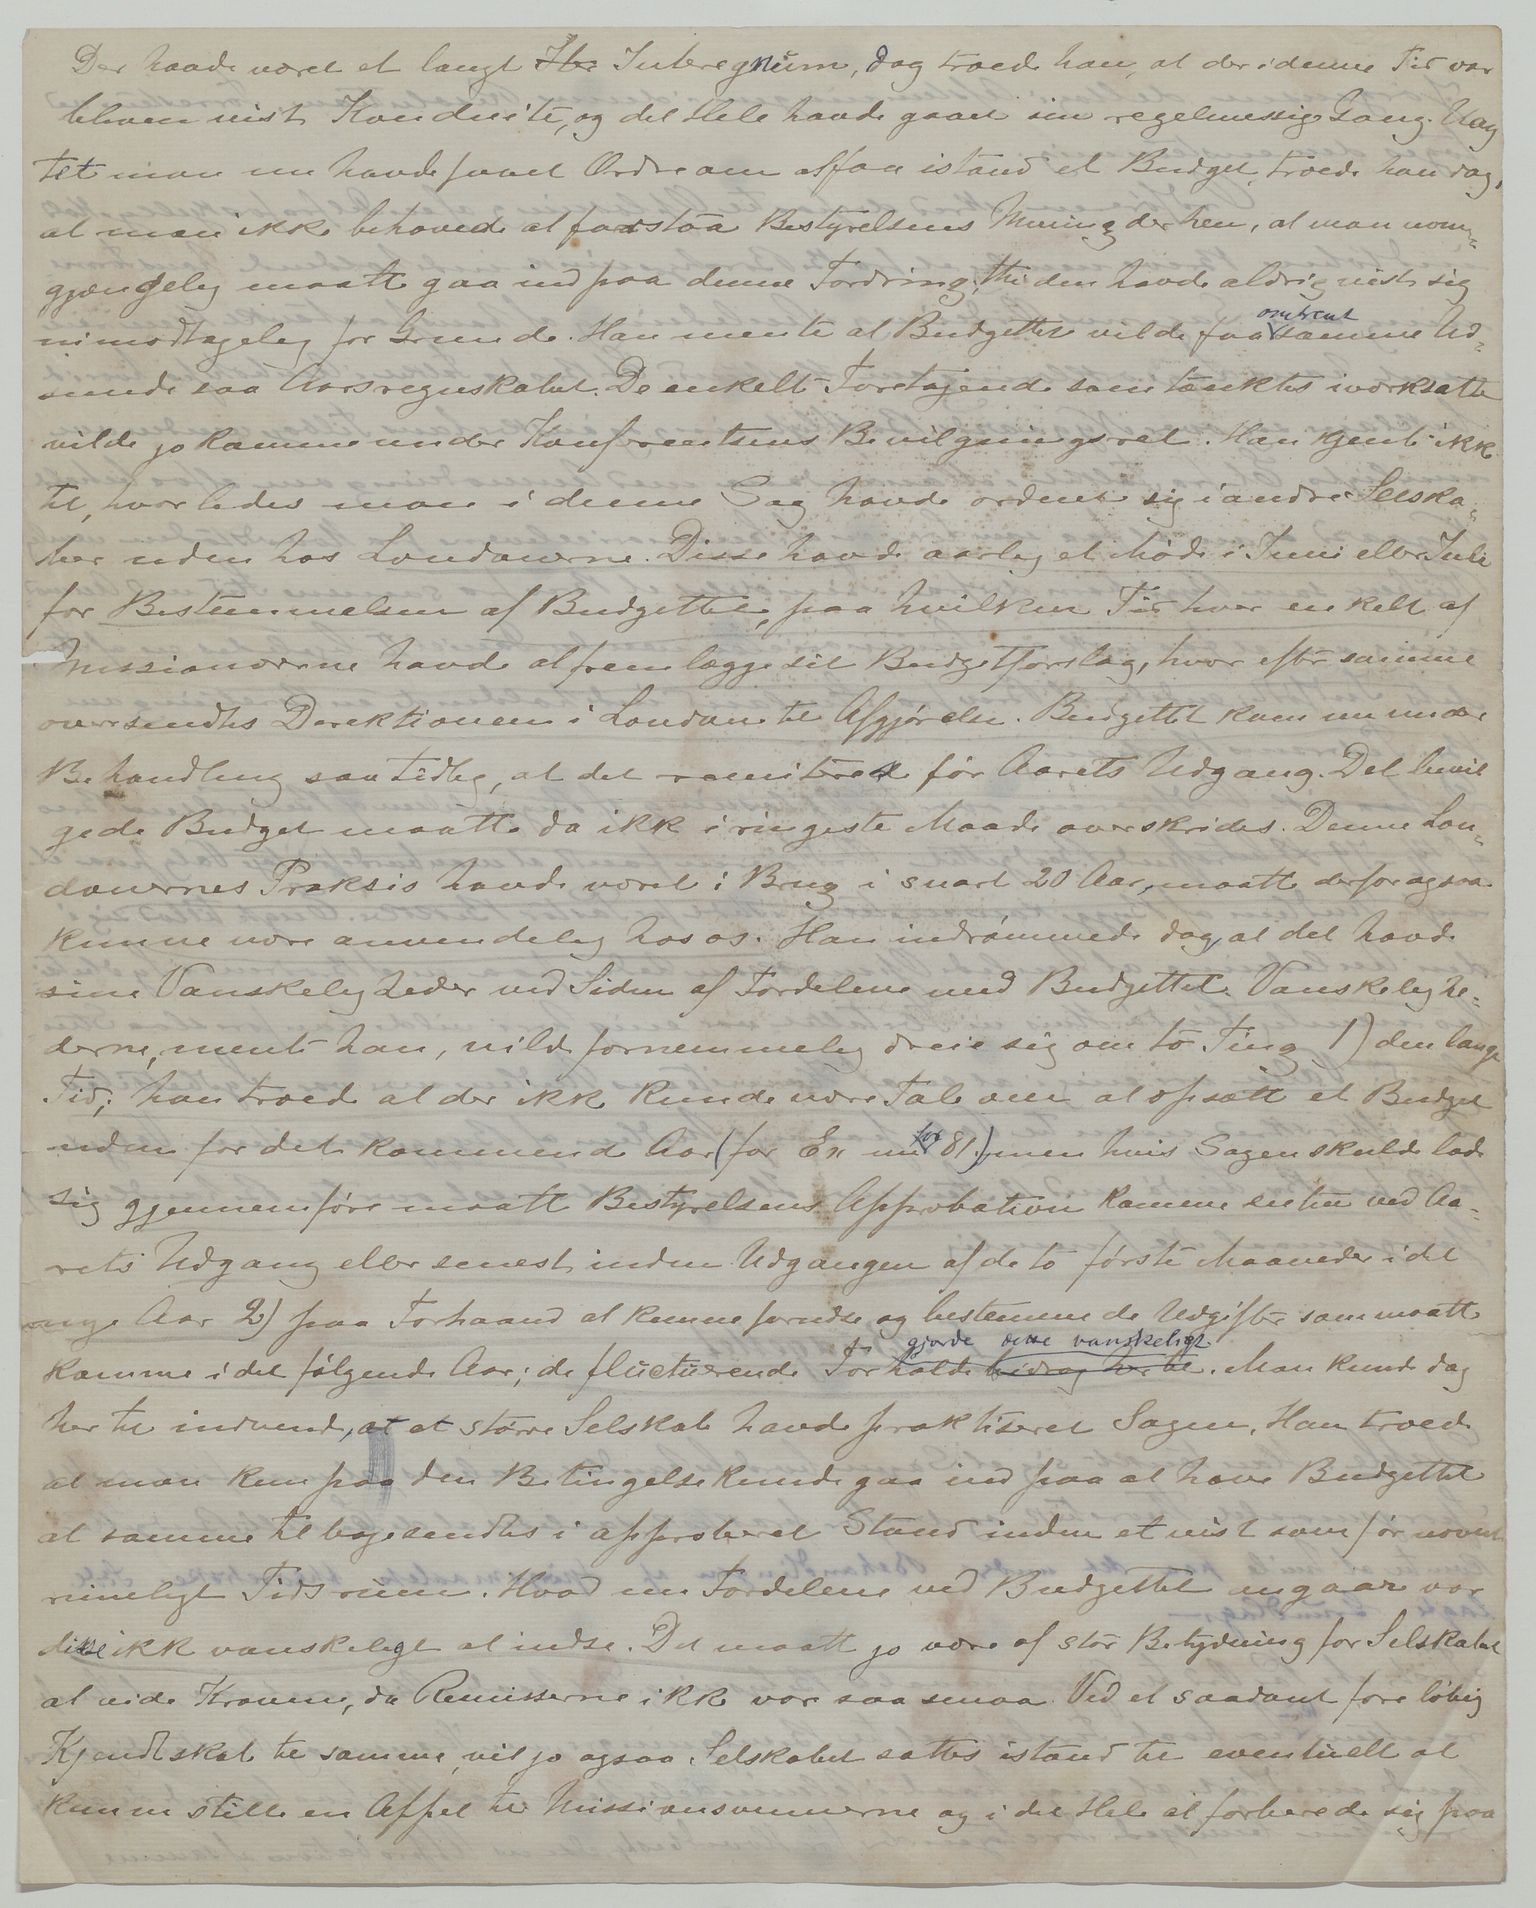 Der havde været et langt Interegnum, dog troede han, at der i denne Tid var
bleven vist Konduite, og det Hele havde gaaet sin regelmessige Gang. Uag
tet man nu havde faaet Ordre om at faa istand et Budget, troede han dog,
at man ikke behøvede at forstaa Bestyrelsens Mening derhen, at man uom-
gjængelig maatte gaa ind paa denne Fordring, thi den havde aldrig vist sig
uimodtagelig for Grunde. Han mente at Budgettet vilde faa omtrent samme Ud-
seende saa Aarsregnskabet. De enkelte Foretagende som tænktes iværksatte
vilde jo komme under Konferentsens Bevilgningsret. Han kjendte ikke
til, hvorledes man i denne Sag havde ordnet sig i andre Selska-
ber uden hos Londonerne. Disse havde aarlig et Møde i Juni eller Juli
for Bestemmelsen af Budgettet, paa hvilken Tid hver enkelt af
Missionærerne havde at fremlægge sit Budgetforslag, hvorefter samme
oversendtes Direktionen i London til Afgjørelse. Budgettet kom nu under
Behandling saa tidlig, at det remitteres før Aarets Udgang. Det bevil
gede Budget maatte da ikke i ringeste Maade overskrides. Denne Lon-
donernes Praksis havde været i Brug i snart 20 Aar, maatte derfor ogsaa
kunne være anvendelig hos os. Han indrømmede dog, at det havde
sine Vanskeligheder ved Siden af Fordelene med Budgettet. Vanskelighe-
derne, mente han, vilde fornemmelig dreie sig om to Ting 1) den lange
Tid; han troede at der ikke kunde være Tale om at opsætte et Budget
uden for det kommende Aar (for Ex nu for 81.) men hvis Sagen skulde lade
sig gjennemføre maatte Bestyrelsens Approbation komme enten ved Aa-
rets Udgang eller senest inden Udgangen af de to første Maaneder i det
nye Aar 2) paa Forhaand at kunne forudse og bestemme de Udgifter som maatte
komme i det følgende Aar; de fluctuerende Forholde gjorde dette vanskeligt. Man kunde dog
hertil indvende, at et større Selskab havde praktiseret Sagen. Han troede
at man kun paa den Betingelse kunde gaa ind paa at have Budgettet
at samme tilbagesendtes i approberet Stand inden et vist som før nævnt
rimeligt Tidsrum. Hvad nu Fordelene ved Budgettet angaar var
disse ikke vanskeligt at indse. Det maatte jo være af stor Betydning for Selskabet
at vide Kravene, da Remisserne ikke var saa smaa. Ved et saadant foreløbig
Kjendtskab til samme, vil jo ogsaa Selskabet sattes istand til eventuelt at
kunne stille en Appel til Missionsvennerne og i det Hele at forberede sig paa